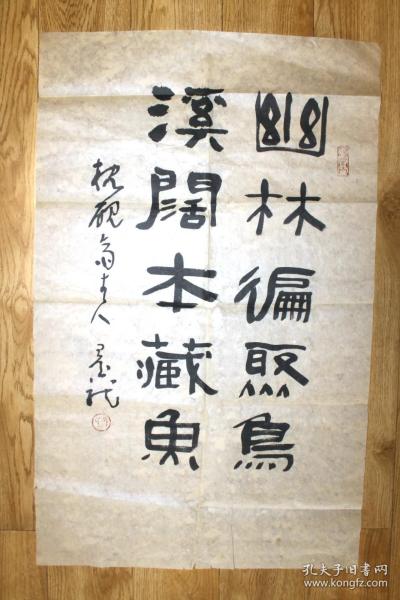 幽林徧聚鳥
溪闊本藏魚
枕硯斋主人 墨龍
孔夫子旧书网
www.kongfz.com